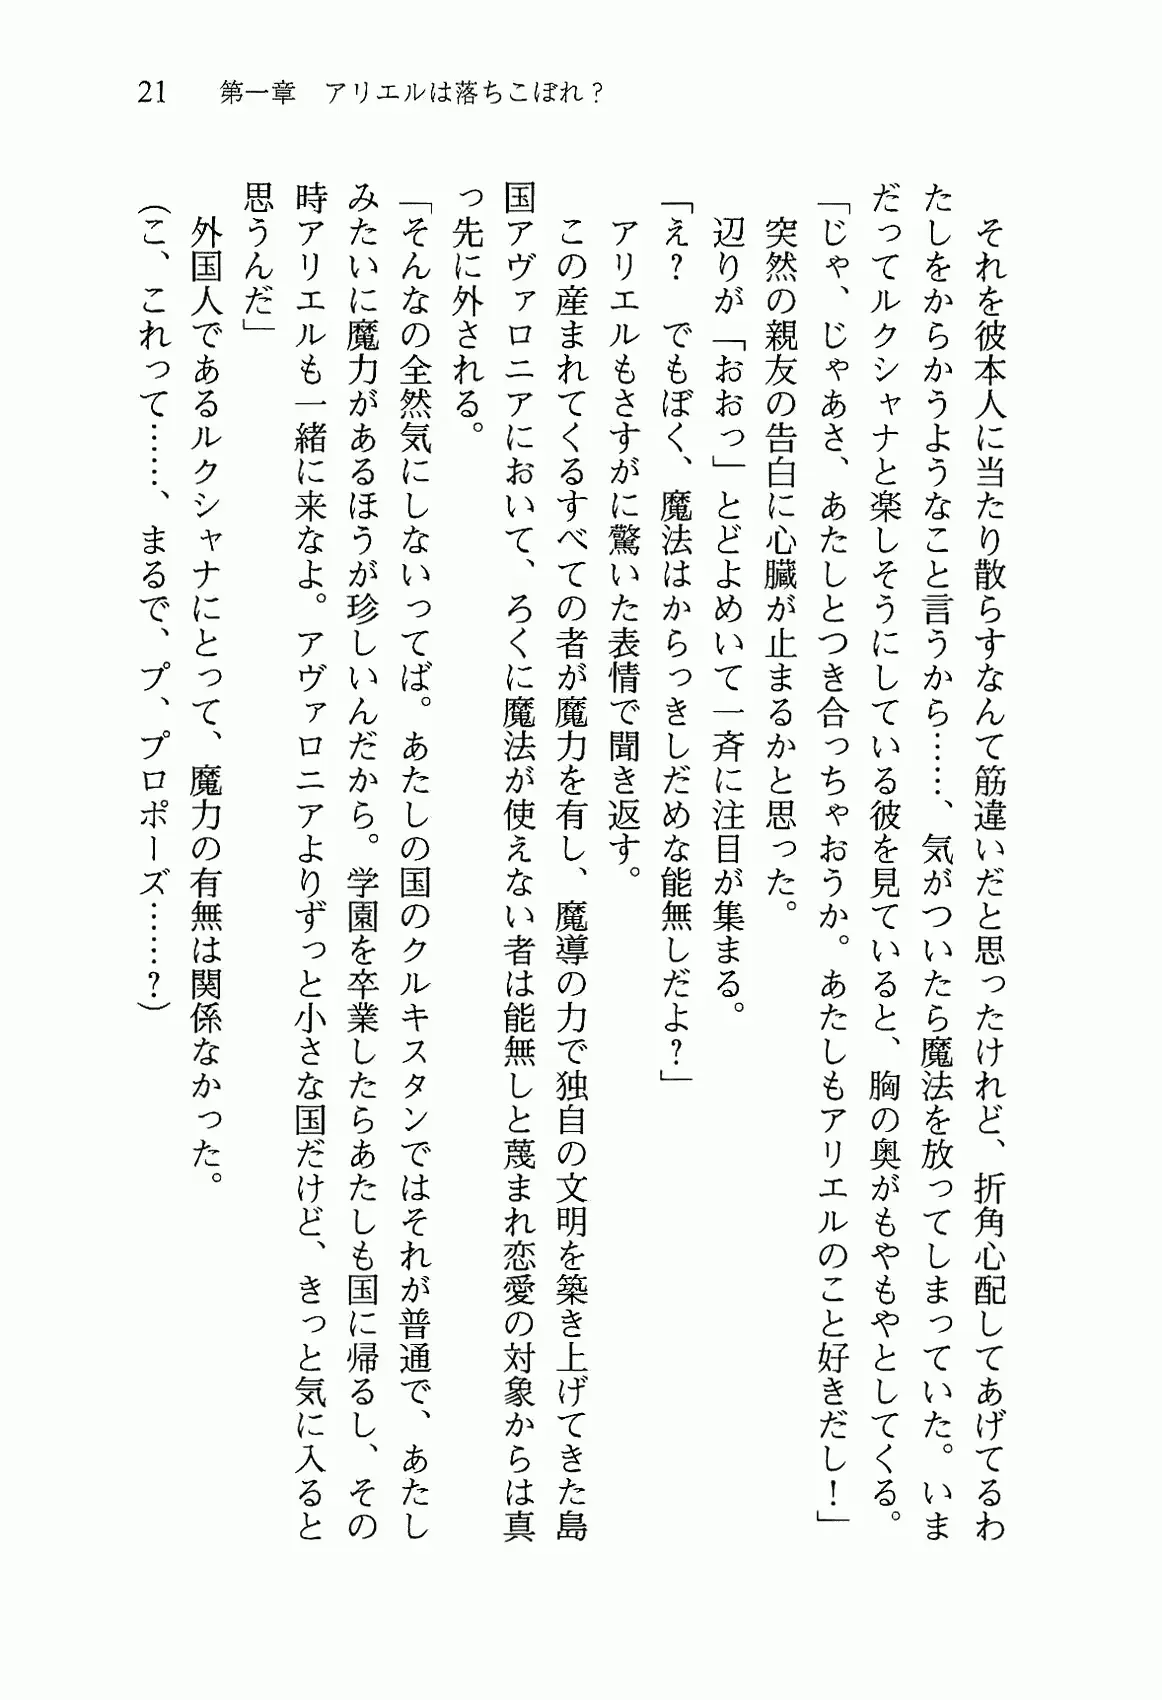 21　第一章　アリエルは落ちこぼれ？
　それを彼本人に当たり散らすなんて筋違いだと思ったけれど、折角心配してあげてるわ
たしをからかうようなこと言うから……、気がついたら魔法を放ってしまっていた。いま
だってルクシャナと楽しそうにしている彼を見ていると、胸の奥がもやもやとしてくる。
「じゃ、じゃあさ、あたしとつき合っちゃおうか。あたしもアリエルのこと好きだし！」
　突然の親友の告白に心臓が止まるかと思った。
　辺りが「おおっ」とどよめいて一斉に注目が集まる。
「え？　でもぼく、魔法はからっきしだめな能無しだよ？」
　アリエルもさすがに驚いた表情で聞き返す。
　この産まれてくるすべての者が魔力を有し、魔導の力で独自の文明を築き上げてきた島
国アヴァロニアにおいて、ろくに魔法が使えない者は能無しと蔑まれ恋愛の対象からは真
っ先に外される。
「そんなの全然気にしないってば。あたしの国のクルキスタンではそれが普通で、あたし
みたいに魔力があるほうが珍しいんだから。学園を卒業したらあたしも国に帰るし、その
時アリエルも一緒に来なよ。アヴァロニアよりずっと小さな国だけど、きっと気に入ると
思うんだ」
　外国人であるルクシャナにとって、魔力の有無は関係なかった。
（こ、これって……、まるで、プ、プロポーズ……？）